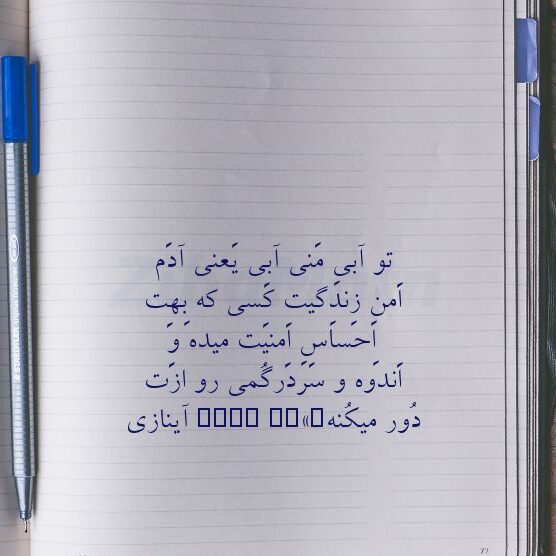 تو آبیِ مَنی آبی یَعنی آدَم
اَمنِ زِندَگیت کَسی که بِهِت
اِحساسِ اَمنیَت میده وَ
اَندوه و سَردَرگُمی رو اَزَت
دُور میکُنه»
آینازی
77